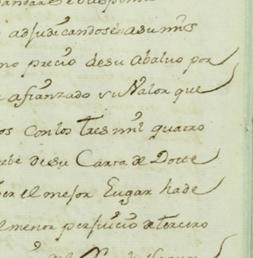 adjudicandose a su mrs
precio de su abaluo por
afianzado su Valor que
os Con los Tres mil quatro
ebe de su Carta de Dotte
el mejor Lugar hade
l menor perjuicio de tercero